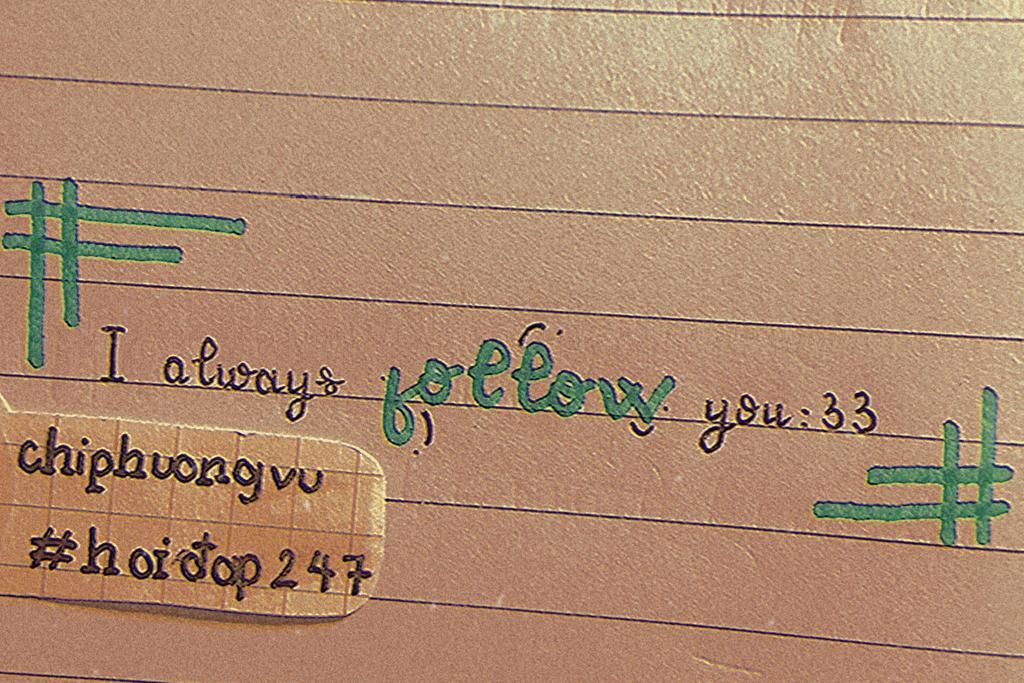 I always follow you:33
chiphuongvu
#hoiđap247